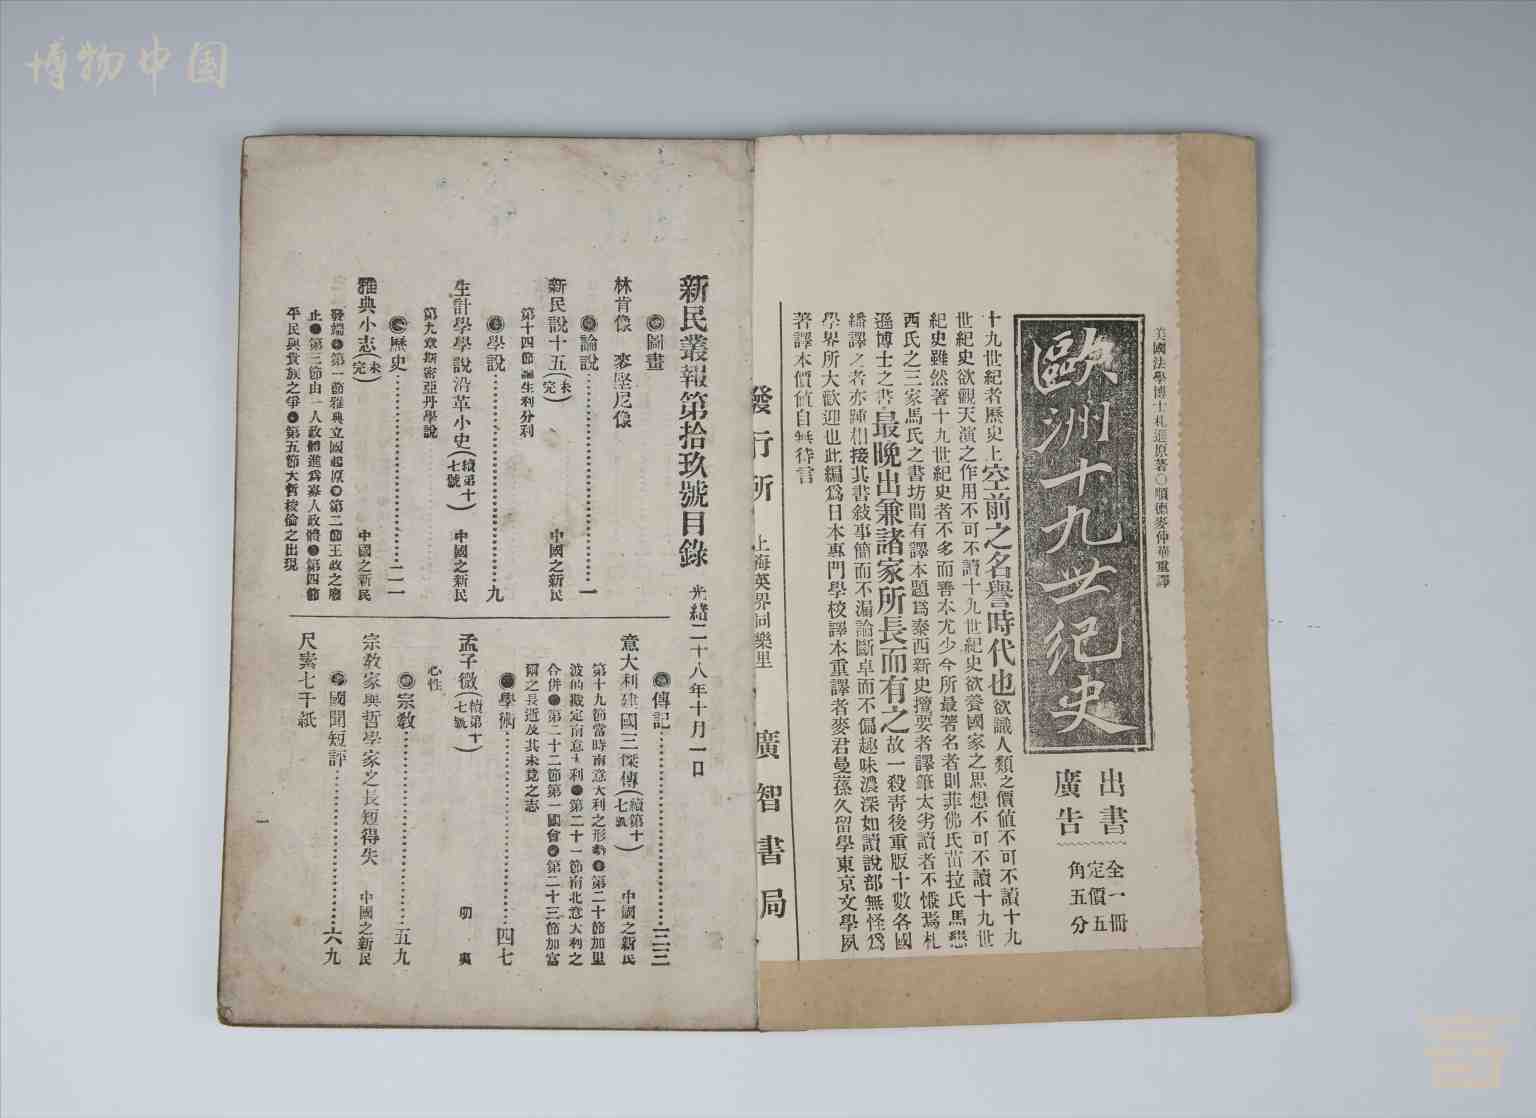 博物中国
美國法學博士札遜原著○順德麥仲華重譯
歐洲十九世紀史
出書
廣告
全一冊
定價五
角五分
十九世紀者歷史上空前之名譽時代也欲識人類之價值不可不讀十九
世紀史欲觀天演之作用不可不讀十九世紀史欲養國家之思想不可不讀十九世
紀史雖然著十九世紀史者不多而善本尤少今所最著名者則菲佛氏苗拉氏馬懇
西氏之三家馬氏之書坊間有譯本題爲泰西新史攬要者譯筆太劣讀者不慊焉札
遜博士之書最晚出兼諸家所長而有之故一殺靑後重版十數各國
繙譯之者亦踵相接其書敍事簡而不漏論斷卓而不偏趣味濃深如讀說部無怪爲
學界所大歡迎也此編爲日本專門學校譯本重譯者麥君曼蓀久留學東京文學夙
著譯本價値自無待言
發行所 上海英界同樂里 廣智書局
新民叢報第拾玖號目錄 光緒二十八年十月一日
◎圖畫
林肯像 麥堅尼像
◎論說……一
新民說十五(未完) 中國之新民
第十四節論生利分利
◎學說……九
生計學學說沿革小史(續第十七號) 中國之新民
第九章斯密亞丹學說
◎歷史……二一
雅典小志(未完) 中國之新民
發端●第一節雅典立國起原●第二節王政之廢
止●第三節由一人政體進爲寡人政體●第四節
平民與貴族之爭●第五節大哲梭倫之出現
◎傳記……三三
意大利建國三傑傳(續第十七號) 中國之新民
第十九節當時南意大利之形勢●第二十節加里
波的戡定南意大利●第二十一節南北意大利之
合併●第二十二節第一國會●第二十三節加富
爾之長逝及其未竟之志
●學術……四七
孟子微(續第十七號) 明夷
心性
◎宗教……五九
宗教家與哲學家之長短得失 中國之新民
◎國聞短評……六九
尺素七千紙
一